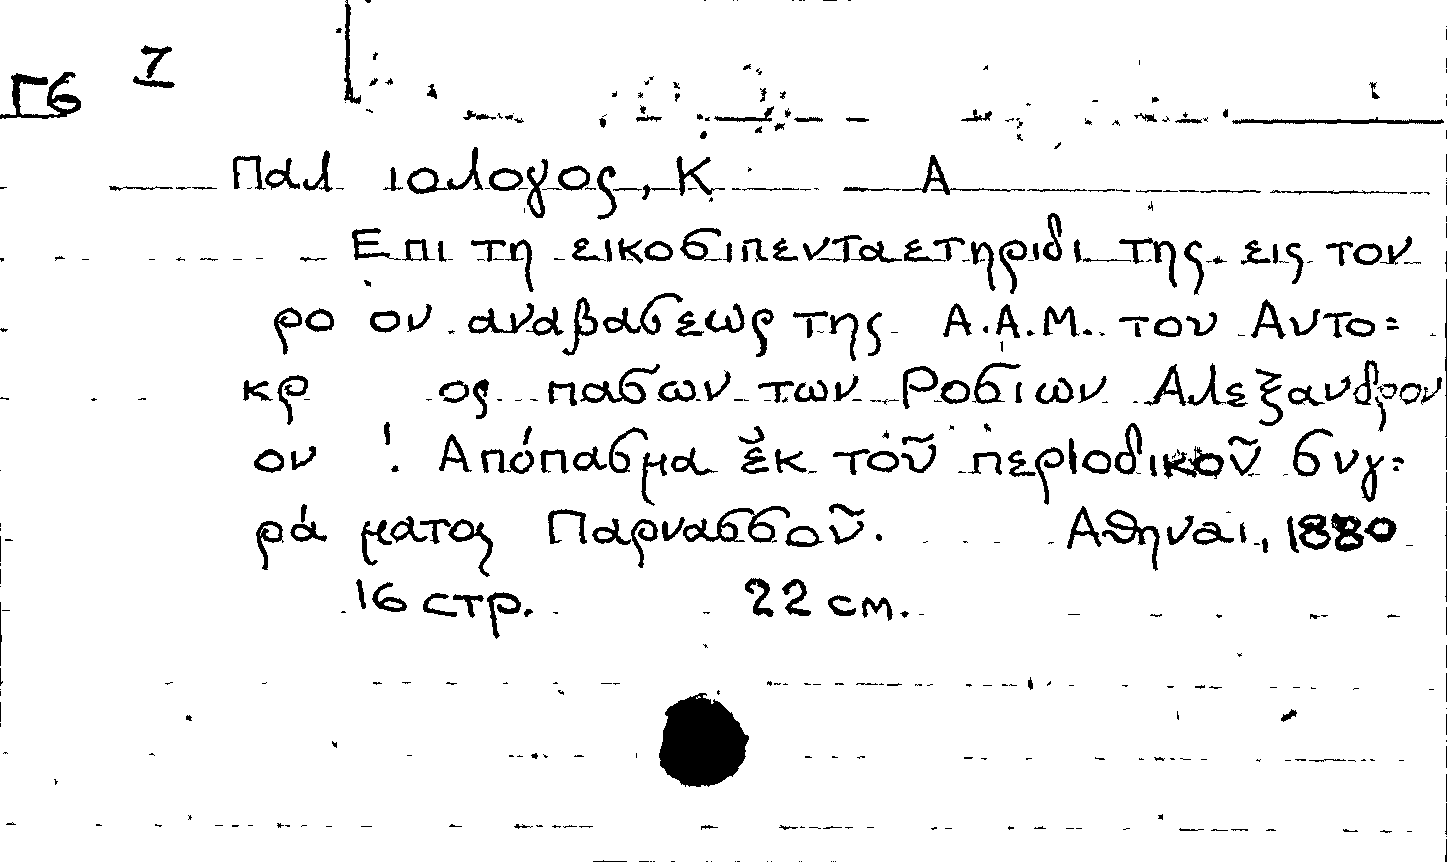 Γ6 7
Παλ ιολογος, Κ Α
Επι τη εικοσιπενταετηριδι της εις τον
ρο ον αναβασεως της Α.Α.Μ. του Αυτο=
κρ ος πασων των Ροσιων Αλεξανδρου
ου '. Απόπασμα ἐκ τοῦ περιοδικοῦ συγ=
ρά ματος Παρνασσοῦ. Αθηναι, 1880
16 стр. 22 см.